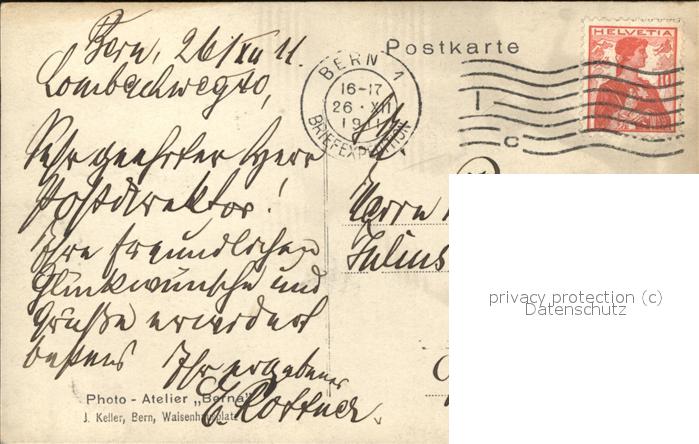 Bern, 26/XII 11.
Lombachweg
Sehr geehrter Herr
Postdirektor!
Ihre freundlichen
Glückwünsche und
Grüße erwidert
bestens Ihr ergebener
Photo - Atelier „Berna“
J. Keller, Bern, Waisenhausplatz
Postkarte
BERN 1
16-17
26 · XII
1911
BRIEFEXPEDITION
HELVETIA
10
Herrn
Julius
privacy protection (c)
Datenschutz